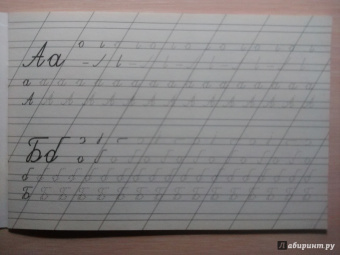 Аа
а а а а а а а а а а а а а а а а
А А А А А А А А А А А А А А А
Бб
б б б б б б б б б б б б б б б б б
Б Б Б Б Б Б Б Б Б Б Б Б Б Б Б Б
Лабиринт.ру